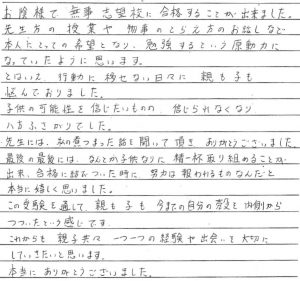 お陰様で 無事 志望校に 合格することが 出来ました。
先生方の 授業や 物事のとらえ方のお話しなど
本人にとっての希望となり、勉強するという原動力に
なっていたように思います。
とはいえ、行動に移せない日々に 親も子も
悩んでおりました。
子供の可能性を信じたいものの、信じられなくなり
八方ふさがりでした。
先生には、私の煮つまった話を聞いて頂き ありがとうございました。
最後の最後には、なんとか子供なりに 精一杯取り組めることが
出来、合格に結びついた時に 努力は報われるものなんだと
本当に嬉しく思いました。
この受験を通して、親も子も 今までの自分の殻を内側から
つついたという感じです。
これからも 親子共々 一つ一つの経験や出会いを大切に
していきたいと思います。
本当に ありがとうございました。